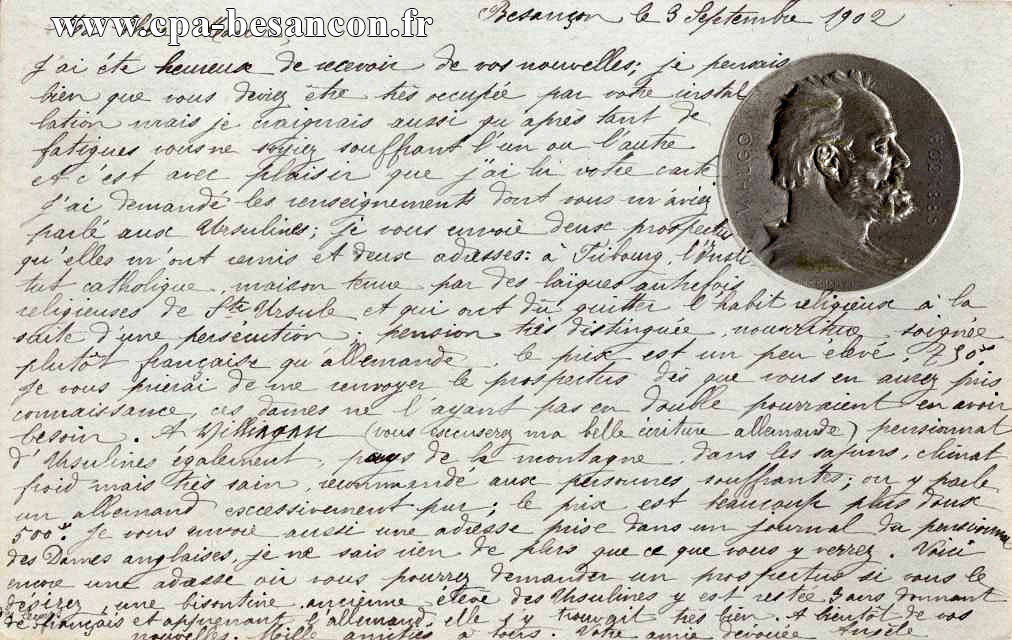 www.cpa-besancon.fr
Besançon le 3 Septembre 1902
J'ai été heureux de recevoir de vos nouvelles; je pensais
bien que vous deviez être très occupée par votre instal
lation mais je craignais aussi qu'après tant de
fatigues vous ne soyiez souffrant l'un ou l'autre
et c'est avec plaisir que j'ai lu votre carte
J'ai demandé les renseignements dont vous m'aviez
parlé aux Ursulines; je vous envoie deux prospectus
qu'elles m'ont remis et deux adresses: à Fribourg, l'Insti
tut catholique, maison tenue par des laïques autrefois
religieuses de Ste Ursule et qui ont dû quitter l'habit religieux à la
suite d'une persécution; pension très distinguée, nourriture soignée
plutôt française qu'allemande, le prix est un peu élevé, 750
Je vous prierai de me renvoyer le prospectus dès que vous en aurez pris
connaissance, ces dames ne l'ayant pas en double pourraient en avoir
besoin. A Villingen (vous excuserez ma belle écriture allemande) pensionnat
d'Ursulines également, pays de la montagne, dans les sapins, climat
froid mais très sain, recommandé aux personnes souffrantes; on y parle
un allemand excessivement pur; le prix est beaucoup plus doux
500. Je vous envoie aussi une adresse prise dans un journal du pensionnat
des Dames anglaises, je ne sais rien de plus que ce que vous y verrez. Voici
encore une adresse où vous pourrez demander un prospectus si vous le
désirez, une bisontine ancienne élève des Ursulines y est restée 3 ans donnant
de français et apprenant l'allemand, elle s'y trouvait très bien. A bientôt de vos
nouvelles. Mille amitiés à tous. Votre amie dévouée
V. HUGO
1802 1885